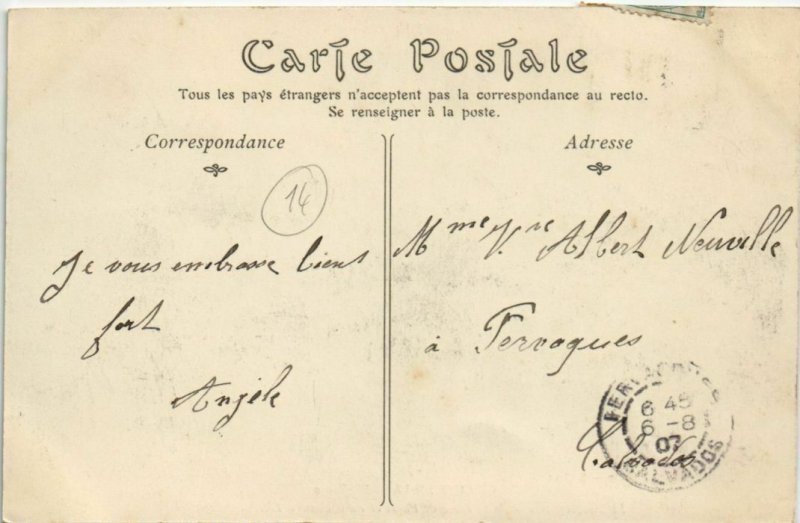 Carte Postale
Tous les pays étrangers n'acceptent pas la correspondance au recto.
Se renseigner à la poste.
Correspondance
14
Je vous embrasse bient
fort
Angèle
Adresse
Mme Vve Albert Neuville
à Fervaques
Calvados
FERVAQUES
6 45
6 -8
07
CALVADOS